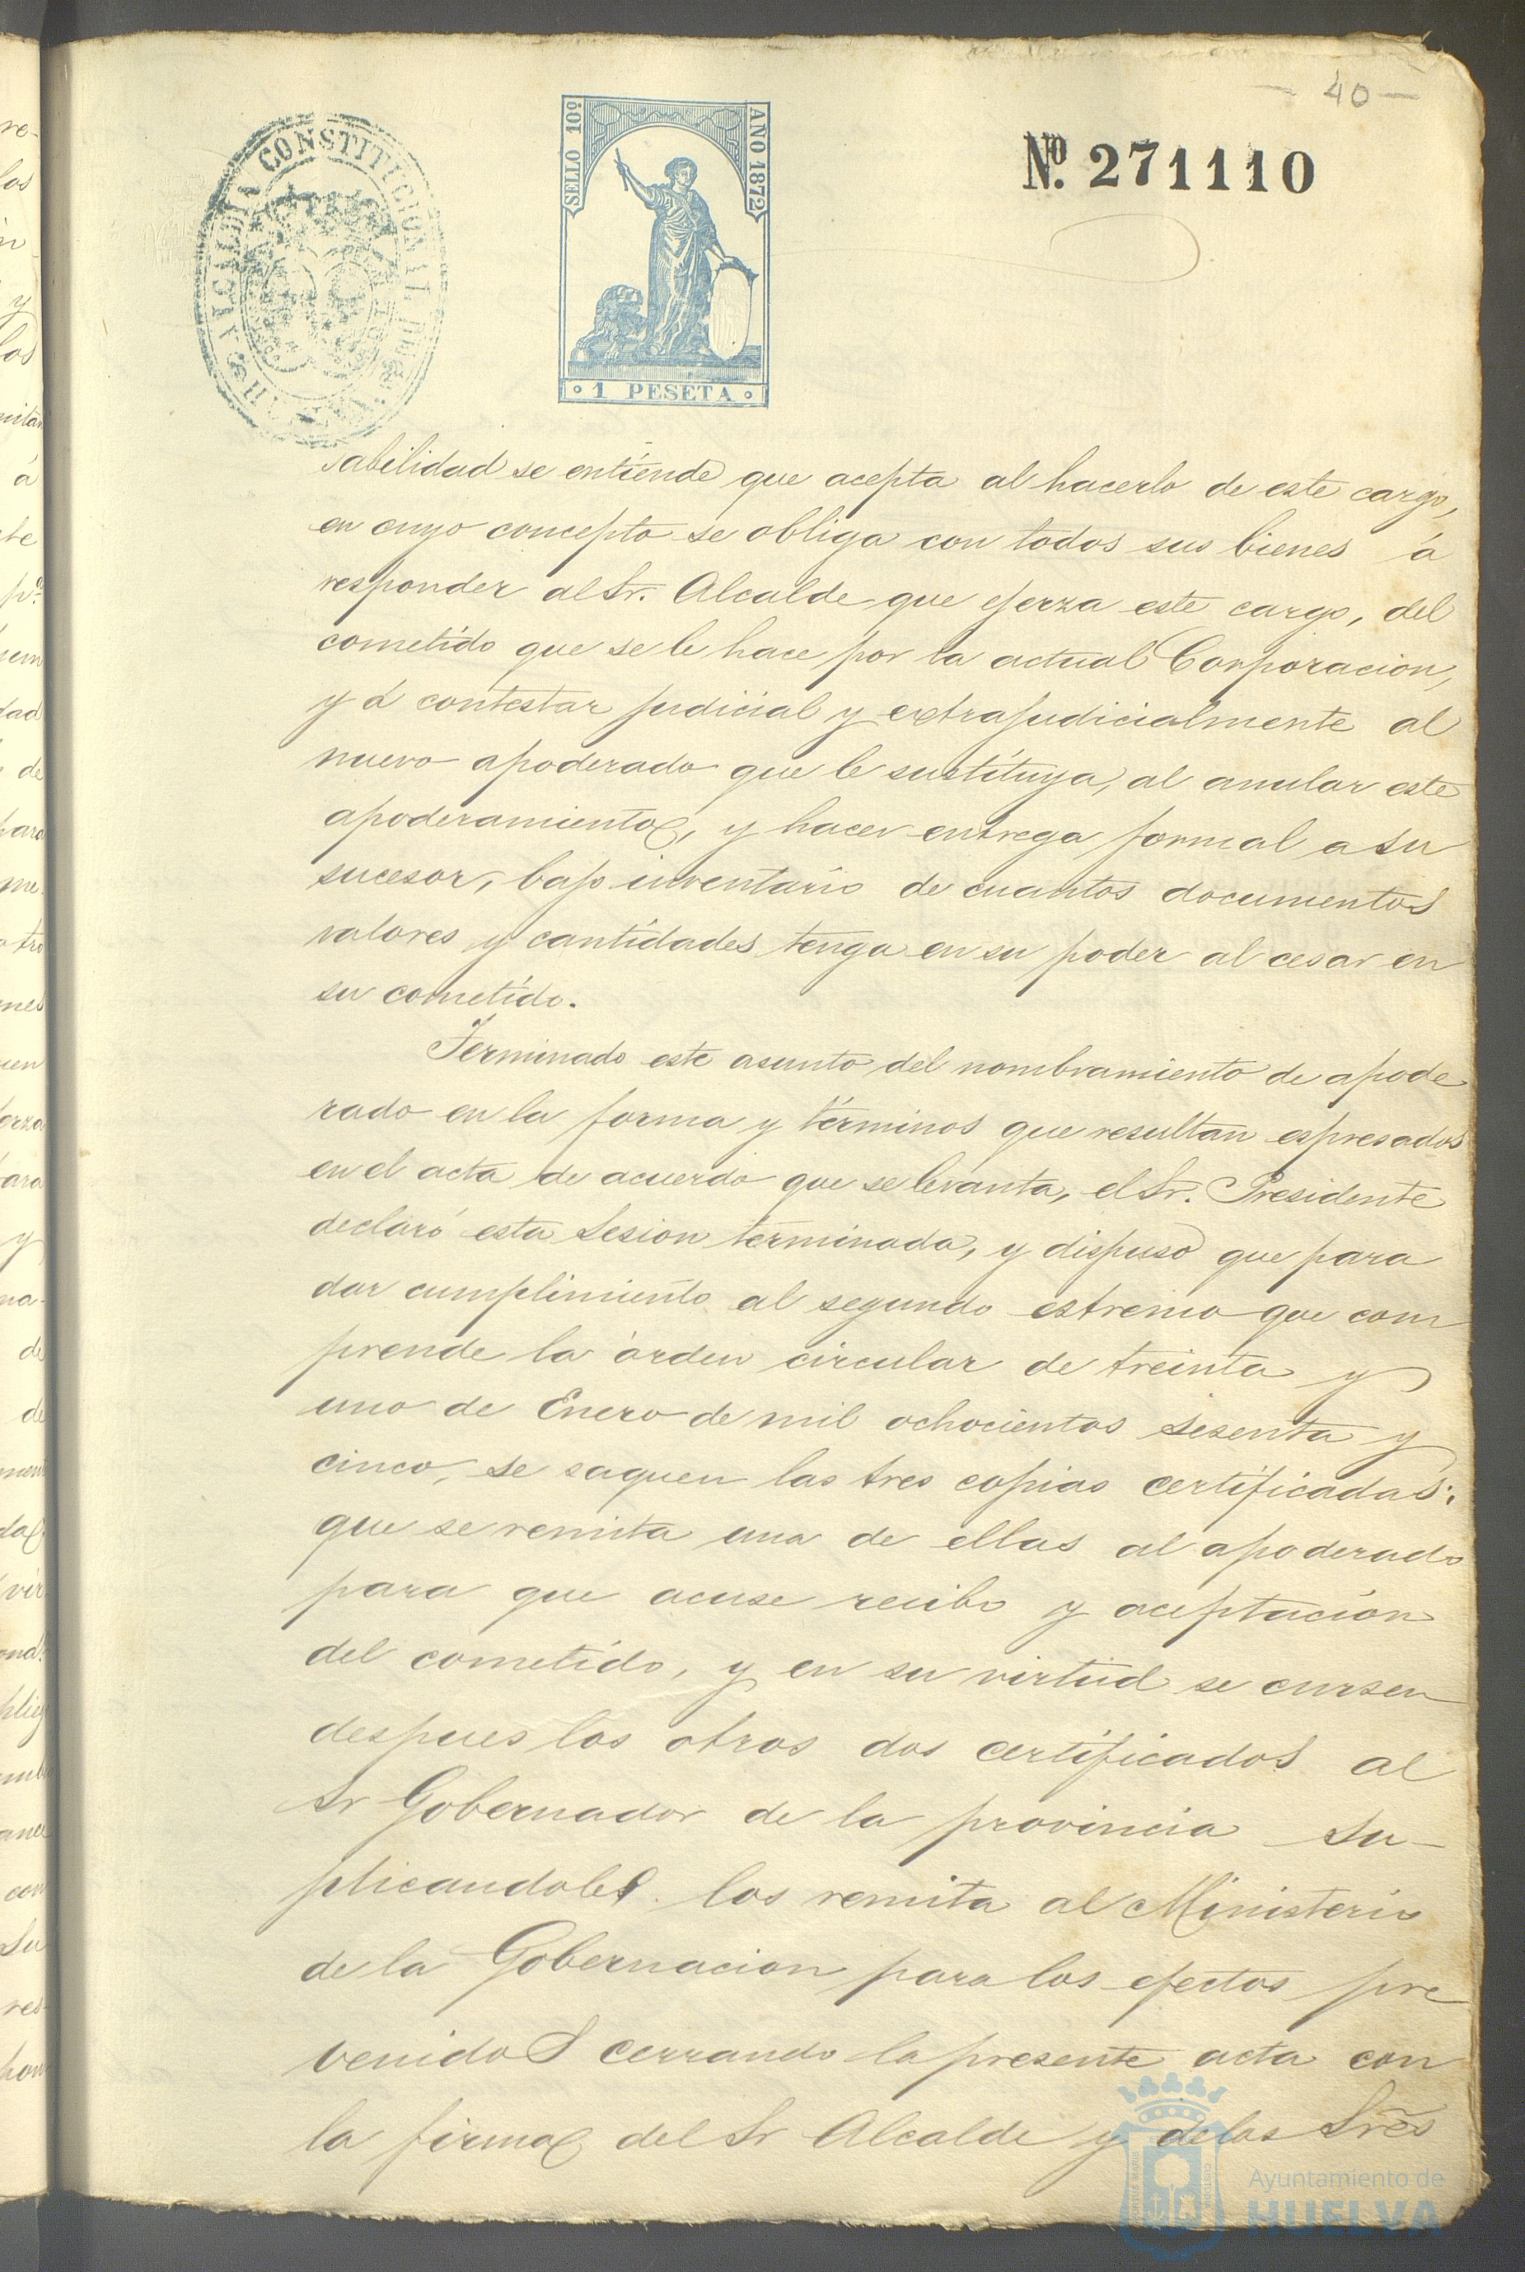 40
Nº. 271110
ALCALDIA CONSTITUCIONAL DE
SELLO 10º
AÑO 1872
1 PESETA
sabilidad se entiende que acepta al hacerlo de este cargo,
en cuyo concepto se obliga con todos sus bienes á
responder al Sr. Alcalde que ejerza este cargo, del
cometido que se le hace por la actual Corporacion,
y á contestar judicial y extrajudicialmente al
nuevo apoderado que le sustituya, al anular este
apoderamiento, y hacer entrega formal a su
sucesor, bajo inventario de cuantos documentos
valores y cantidades tenga en su poder al cesar en
su cometido.
Terminado este asunto del nombramiento de apode
rado en la forma y términos que resultan espresados
en el acta de acuerdo que se levanta, el Sr. Presidente
declaró esta Sesion terminada, y dispuso que para
dar cumplimiento al segundo estremo que com
prende la órden circular de treinta y
uno de Enero de mil ochocientos sesenta y
cinco, se saquen las tres copias certificadas:
que se remita una de ellas al apoderado
para que acuse recibo y aceptación
del cometido, y en su virtud se cursen
despues los otros dos certificados al
Sr Gobernador de la provincia su-
plicandole los remita al Ministerio
de la Gobernacion para los efectos pre
venidos cerrando la presente acta con
la firma del Sr Alcalde y de los Sres
Ayuntamiento de
HUELVA